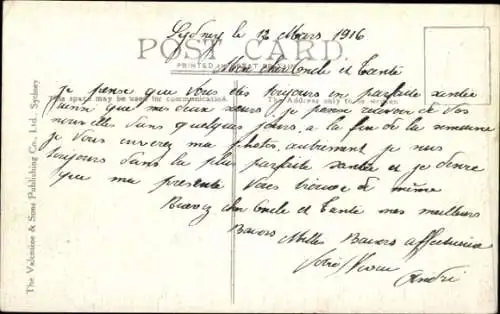 Sydney le 12 Mars 1916
POST CARD
PRINTED IN GREAT BRITAIN
Mon cher Oncle et Tante
je pense que vous êtes toujours en parfaite santée
This space may be used for communication.
The Address only to be written
ainsi que mes deux sœurs. je pense recevoir de vos
nouvelles dans quelques jours, a la fin de la semaine
je vous enverez ma photos, autrement je suis
toujours dans la plus parfaite santée et je désire
que ma presente vous trouve de même
Recevez cher Oncle et Tante mes meilleurs
Baisers Mille Baisers affectueux
Votre Neveu
André
The Valentine & Sons Publishing Co., Ltd., Sydney